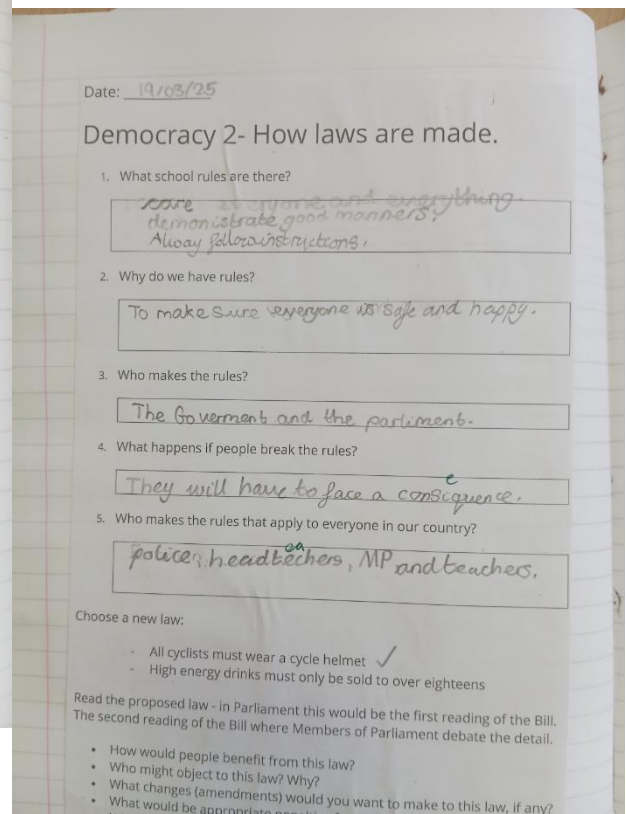 Date: 19/03/25
Democracy 2- How laws are made.
1. What school rules are there?
care everyone and everything.
demonistrate good manners.
Alway follow instructions.
2. Why do we have rules?
To make sure everyone is safe and happy.
3. Who makes the rules?
The Goverment and the parliment.
4. What happens if people break the rules?
e
They will have to face a consiquence.
5. Who makes the rules that apply to everyone in our country?
ea
police, headtechers, MP and teachers.
Choose a new law:
- All cyclists must wear a cycle helmet ✓
- High energy drinks must only be sold to over eighteens
Read the proposed law - in Parliament this would be the first reading of the Bill.
The second reading of the Bill where Members of Parliament debate the detail.
• How would people benefit from this law?
• Who might object to this law? Why?
• What changes (amendments) would you want to make to this law, if any?
• What would be appropriate